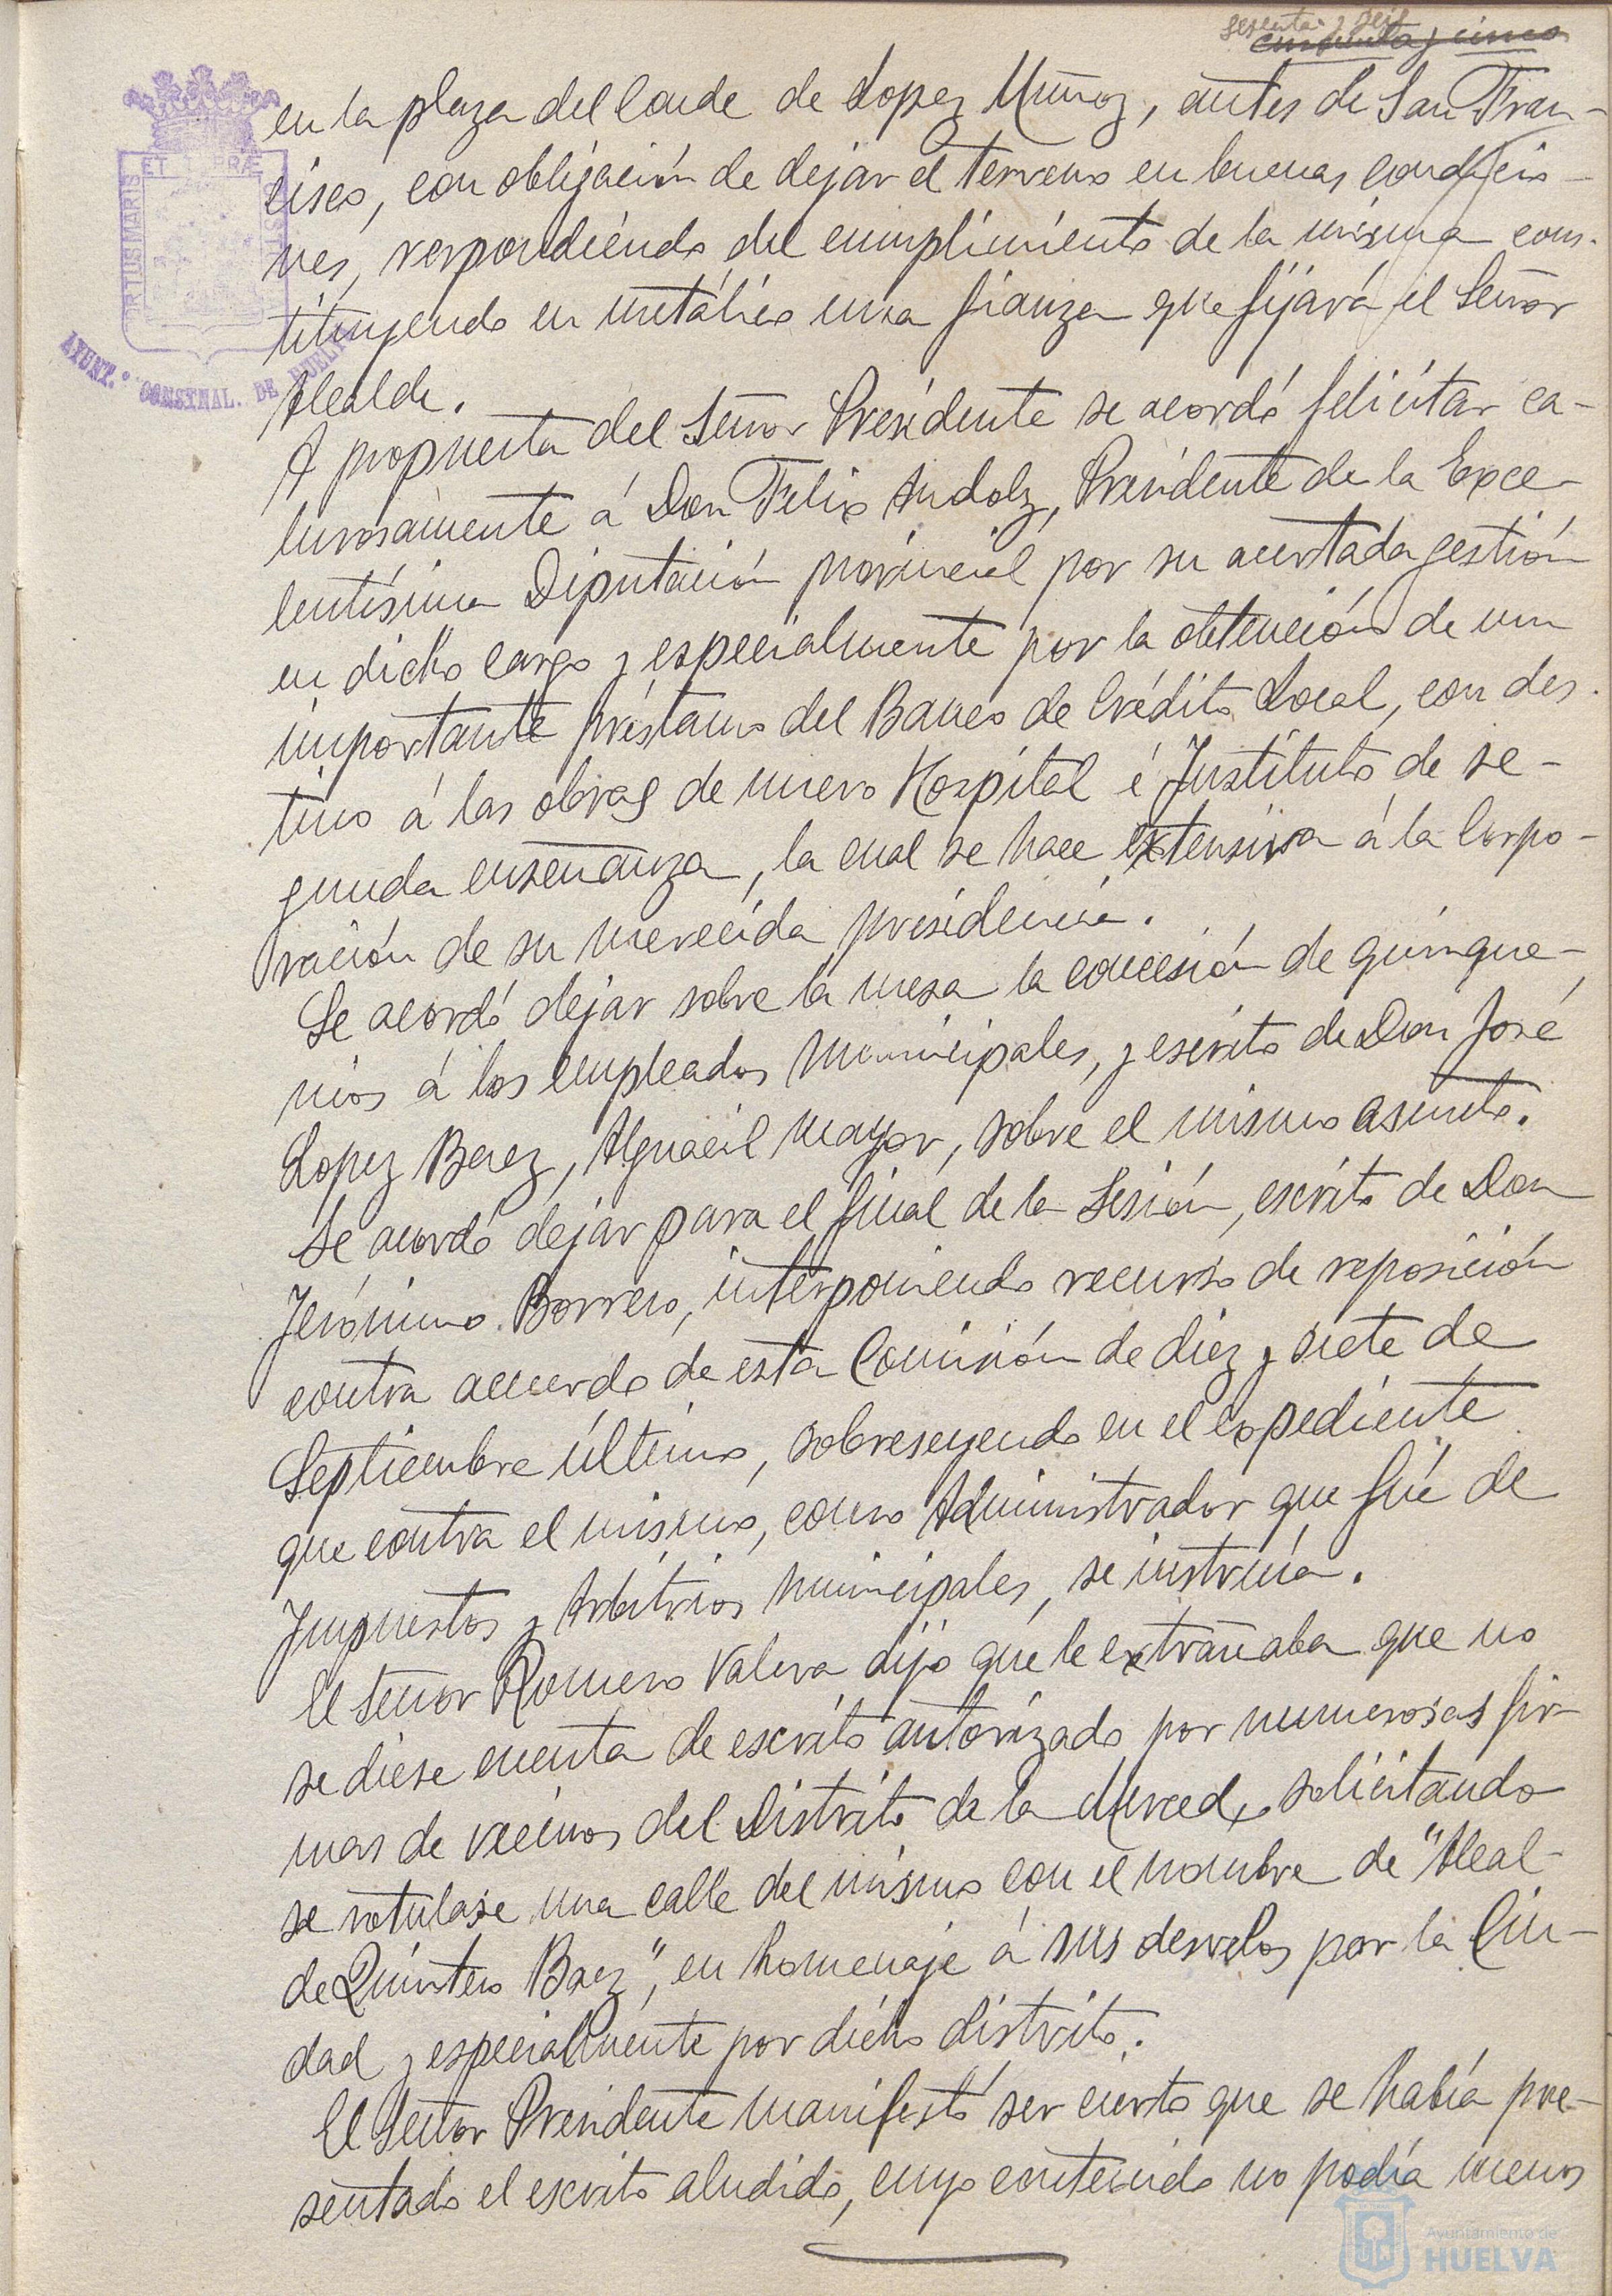 sesenta y seis
cincuenta y cinco
en la plaza del Conde de Lopez Muñoz, antes de San Fran-
cisco, con obligación de dejar el terreno en buenas condicio-
nes, respondiendo del cumplimiento de la misma cons-
tituyendo en metálico una fianza que fijará el Señor
Alcalde.
A propuesta del Señor Presidente se acordó felicitar ca-
lurosamente á Don Felix Andolz, Presidente de la Exce-
lentísima Diputación provincial por su acertada gestión
en dicho cargo y especialmente por la obtención de un
importante préstamo del Banco de Crédito Local, con des-
tino á las obras de nuevo Hospital é Instituto de se-
gunda enseñanza, la cual se hace extensiva á la Corpo-
ración de su merecida presidencia.
Se acordó dejar sobre la mesa la concesión de quinque-
nios á los empleados municipales, y escrito de Don José
Lopez Baez, Alguacil mayor, sobre el mismo asunto.
Se acordó dejar para el final de la Sesión, escrito de Don
Jerónimo Borrero, interponiendo recurso de reposición
contra acuerdo de esta Comisión de diez y siete de
Septiembre último, sobreseyendo en el expediente
que contra el mismo, como Administrador que fué de
Impuestos y Arbitrios municipales, se instruía.
El Señor Romero Valera dijo que le extrañaba que no
se diese cuenta de escrito autorizado por numerosas fir-
mas de vecinos del Distrito de la Merced, solicitando
se rotulase una calle del mismo con el nombre de "Alcal-
de Quintero Baez", en homenaje á sus desvelos por la Ciu-
dad y especialmente por dicho distrito.
El Señor Presidente manifestó ser cierto que se había pre-
sentado el escrito aludido, cuyo contenido no podía menos
AYUNT.º CONSTNAL. DE HUELVA
PORTUS MARIS ET TERRÆ
Ayuntamiento de
HUELVA